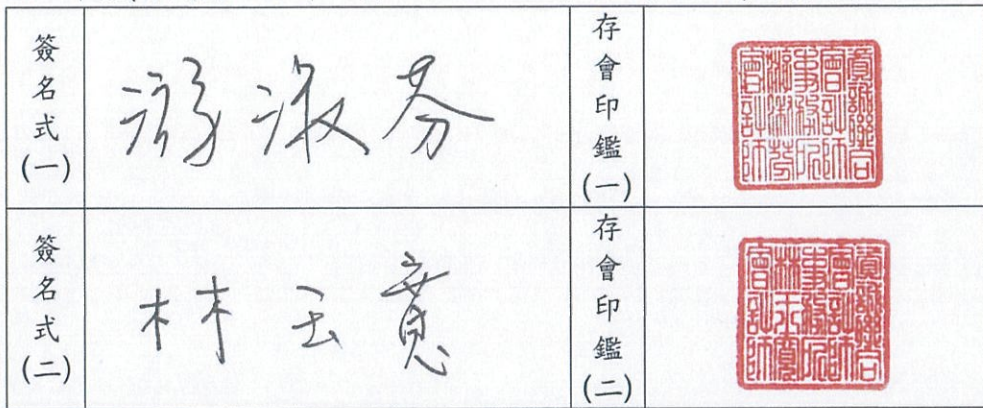 簽名式(一)
游淑芬
存會印鑑(一)
資誠聯合會計師事務所游淑芬會計師
簽名式(二)
林玉寬
存會印鑑(二)
資誠聯合會計師事務所林玉寬會計師